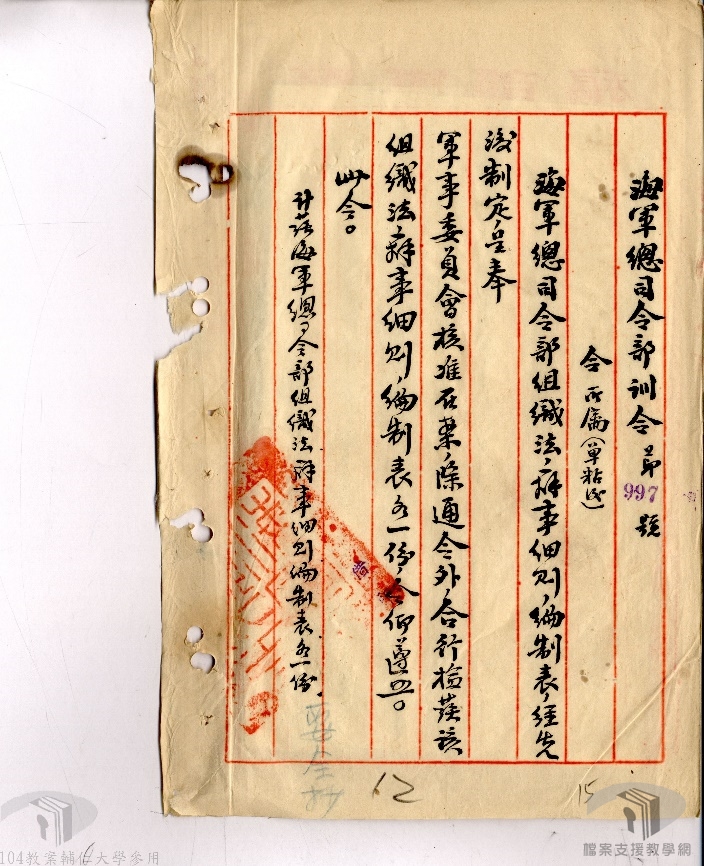 海軍總司令部訓令 第997號
令所屬(單粘後)
海軍總司令部組織法、辦事細則、編制表、經先
後制定呈奉
軍事委員會核准在案、除通令外、合行檢發該
組織法、辦事細則、編制表各一份、令仰遵照。
此令。
計發海軍總司令部組織法、辦事細則編制表各一份、
12
15
104教案輔仁大學參用
檔案支援教學網